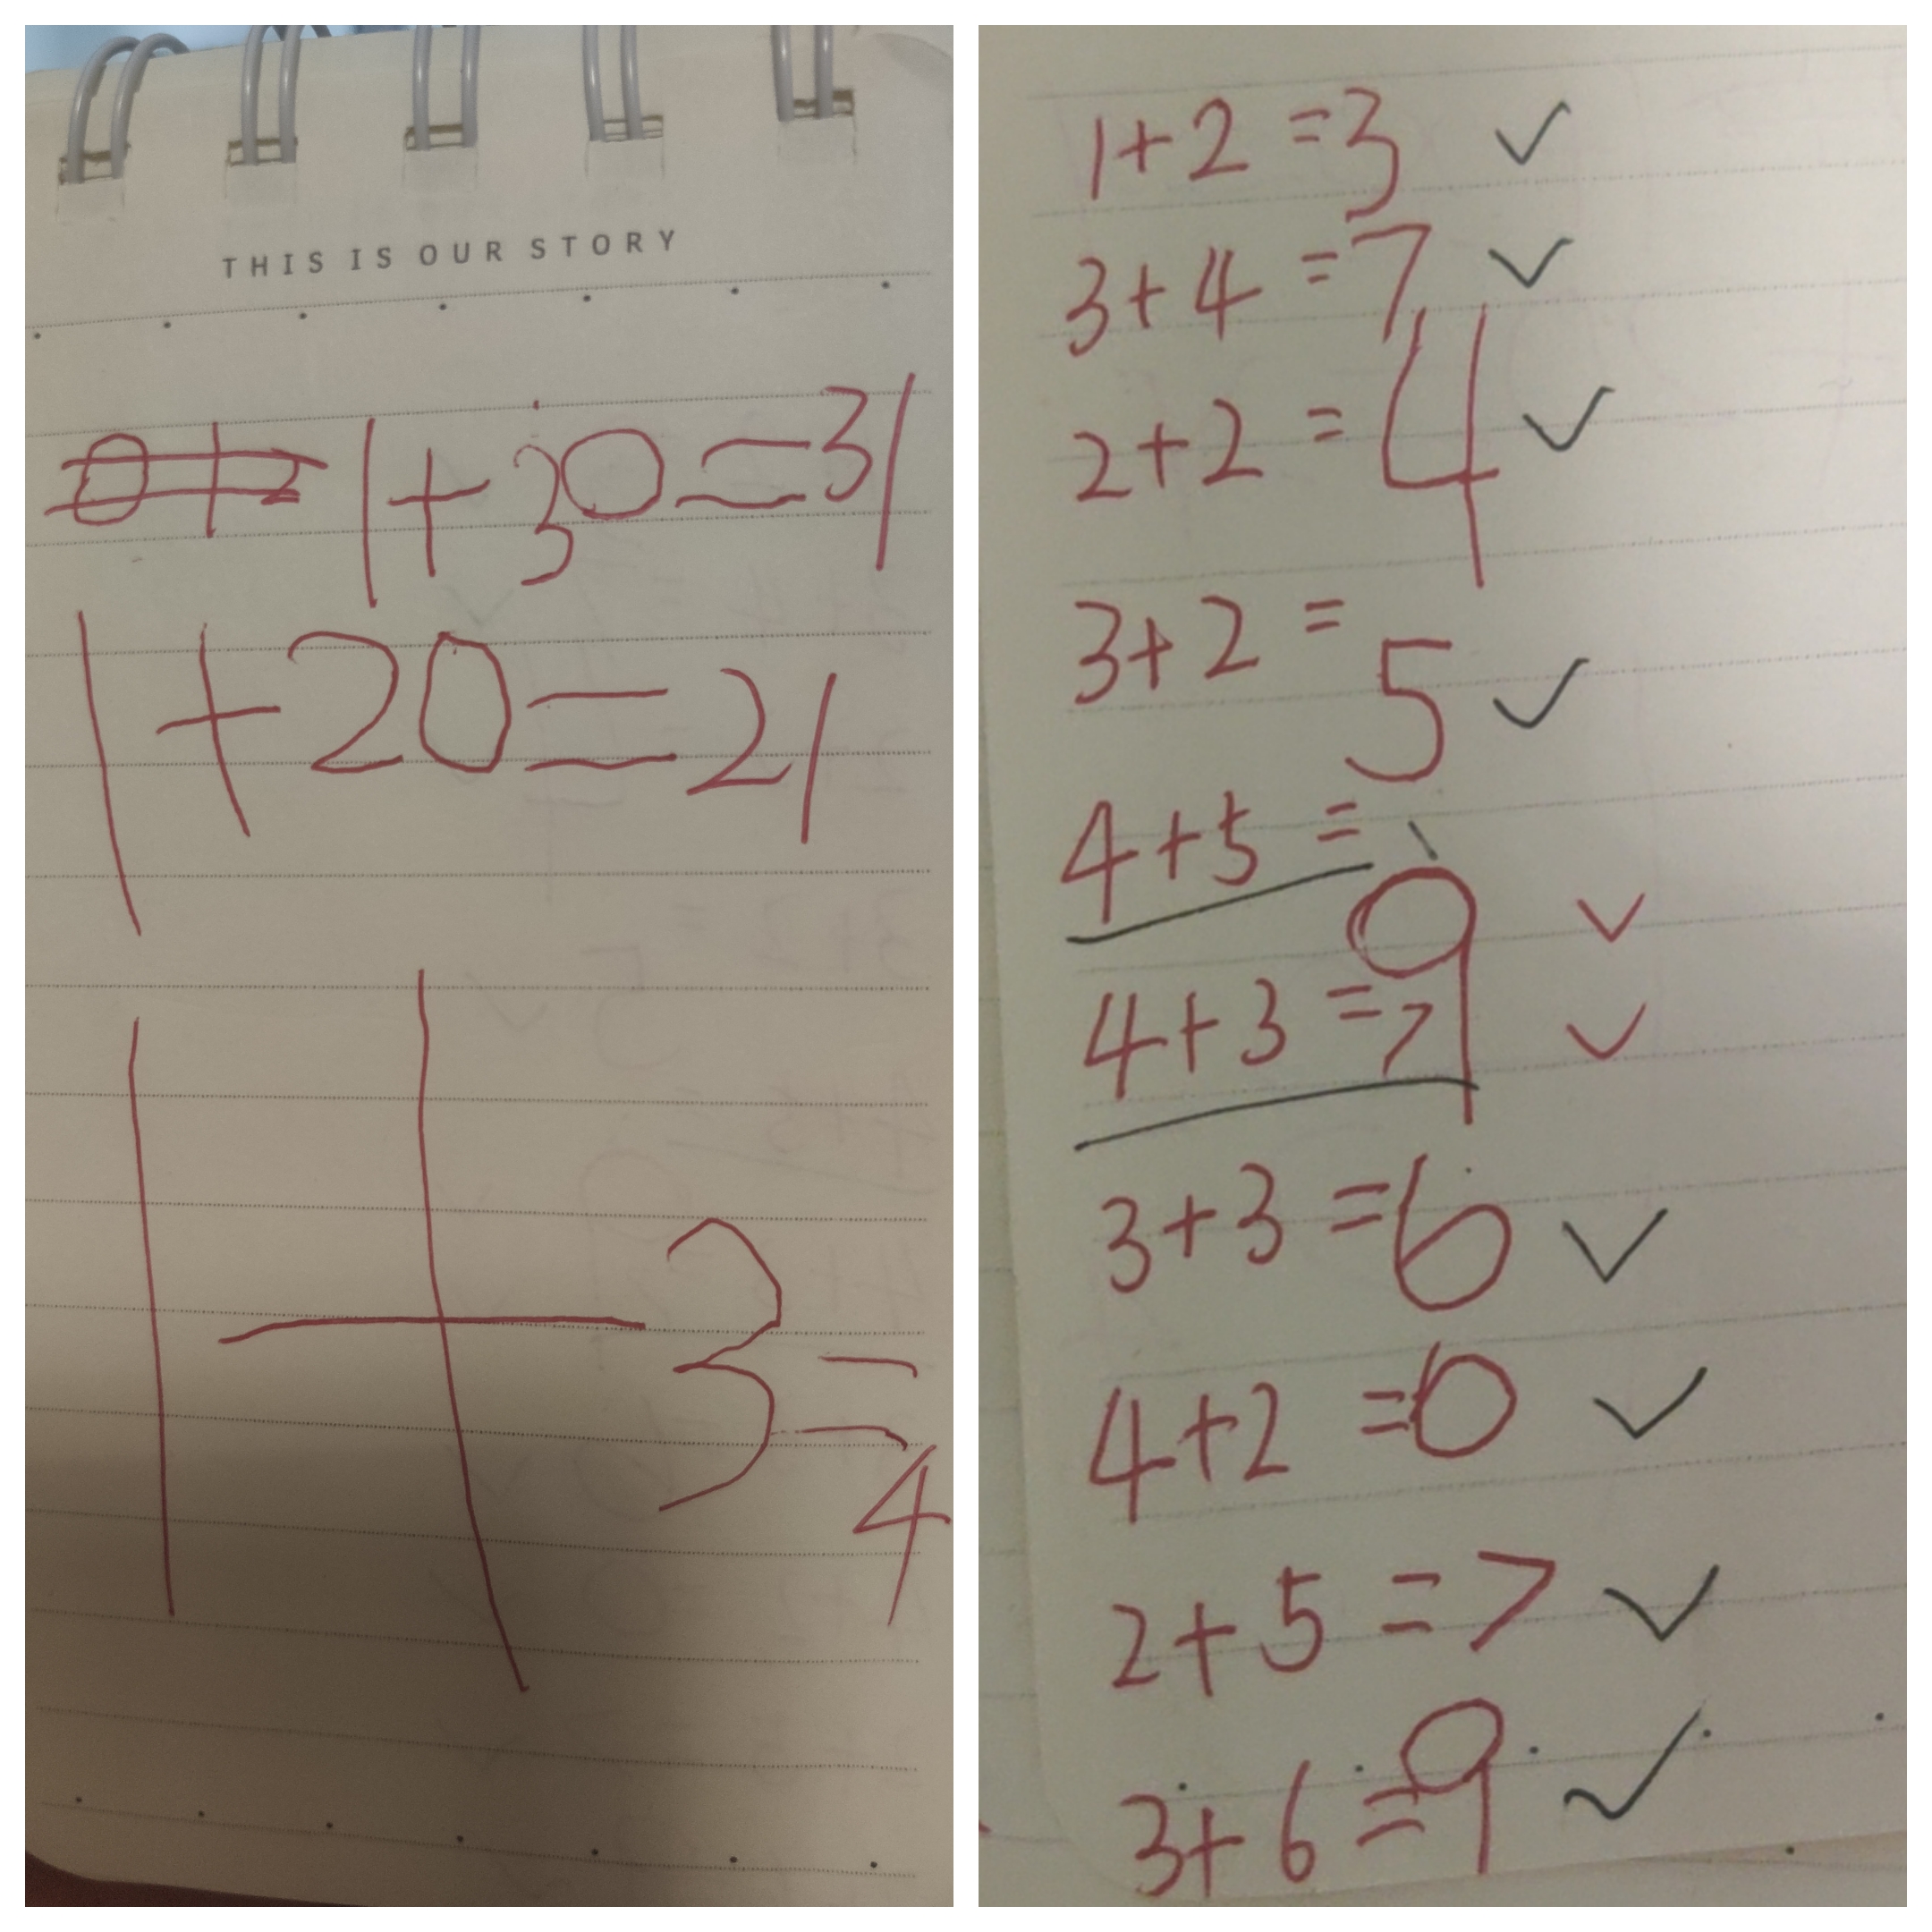 THIS IS OUR STORY
1+30=31
1+20=21
1+3=4
1+2=3 ✓
3+4=7 ✓
2+2=4 ✓
3+2=5 ✓
4+5=9 ✓
4+3=7 ✓
3+3=6 ✓
4+2=6 ✓
2+5=7 ✓
3+6=9 ✓